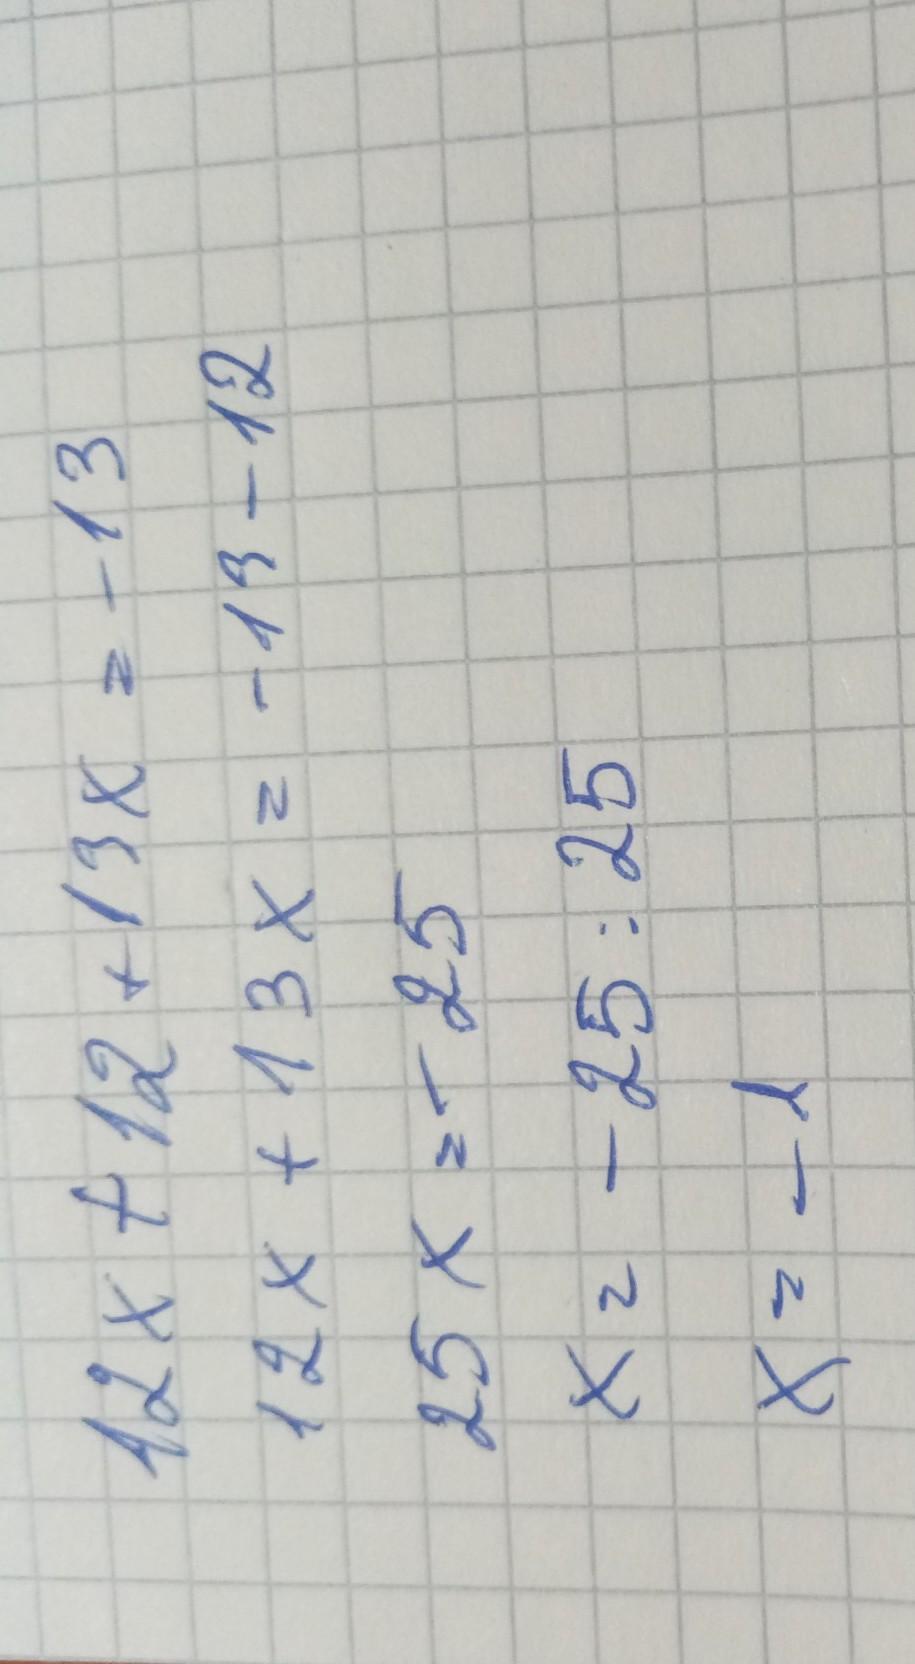 12x + 12 + 13x = -13
12x + 13x = -13 - 12
25x = -25
x = -25 : 25
x = -1